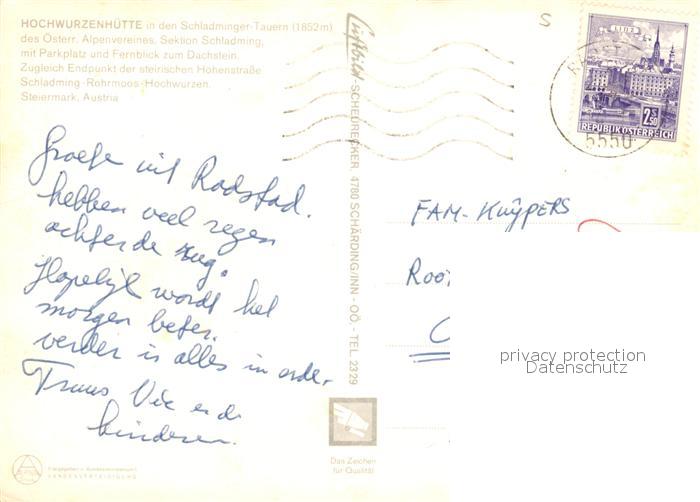 HOCHWURZENHÜTTE in den Schladminger-Tauern (1852m)
des Österr. Alpenvereines, Sektion Schladming,
mit Parkplatz und Fernblick zum Dachstein.
Zugleich Endpunkt der steirischen Höhenstraße
Schladming-Rohrmoos-Hochwurzen.
Steiermark, Austria
Groeten uit Radstad.
hebben veel regen
achter de rug.
Hopelijk wordt het
morgen beter.
verder is alles in orde.
Truus en de
kinderen.
Luftbild SCHEURECKER, 4780 SCHÄRDING/INN - OÖ. - TEL. 2329
S
LINZ
2.50
REPUBLIK ÖSTERREICH
5550
FAM. KUŸPERS
Das Zeichen
für Qualität
LANDESVERTEIDIGUNG
privacy protection
Datenschutz